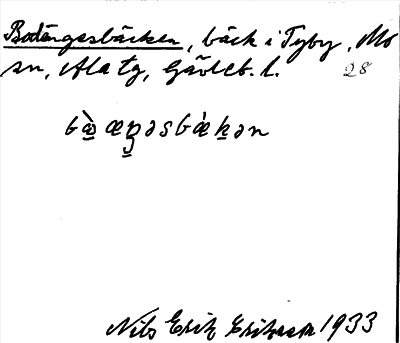 Bodängesbäcken, bäck i Tyby, Mo
sn, Ala tg, Gävleb. l. 28
Nils Erik Eriksson 1933